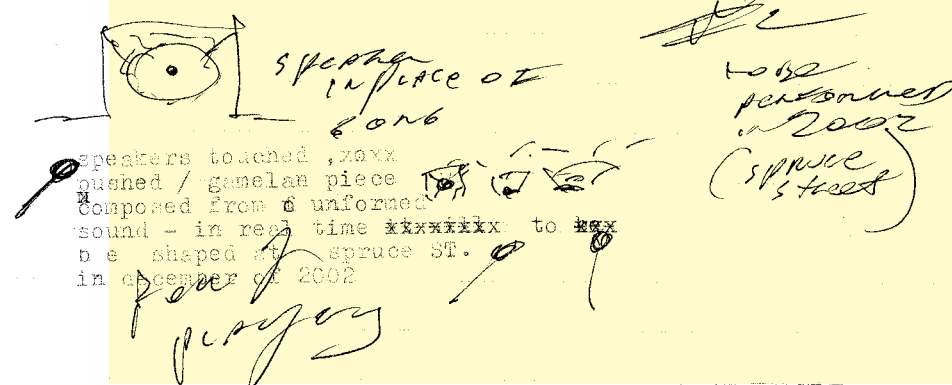 speaker
in place of
gong
to be
performed
in 2002
(spruce
street)
speakers touched ,xoxx
pushed / gamelan piece
composed from d unformed
sound - in real time xkxxxikkx to kex
b e shaped at spruce ST.
in december of 2002
playing